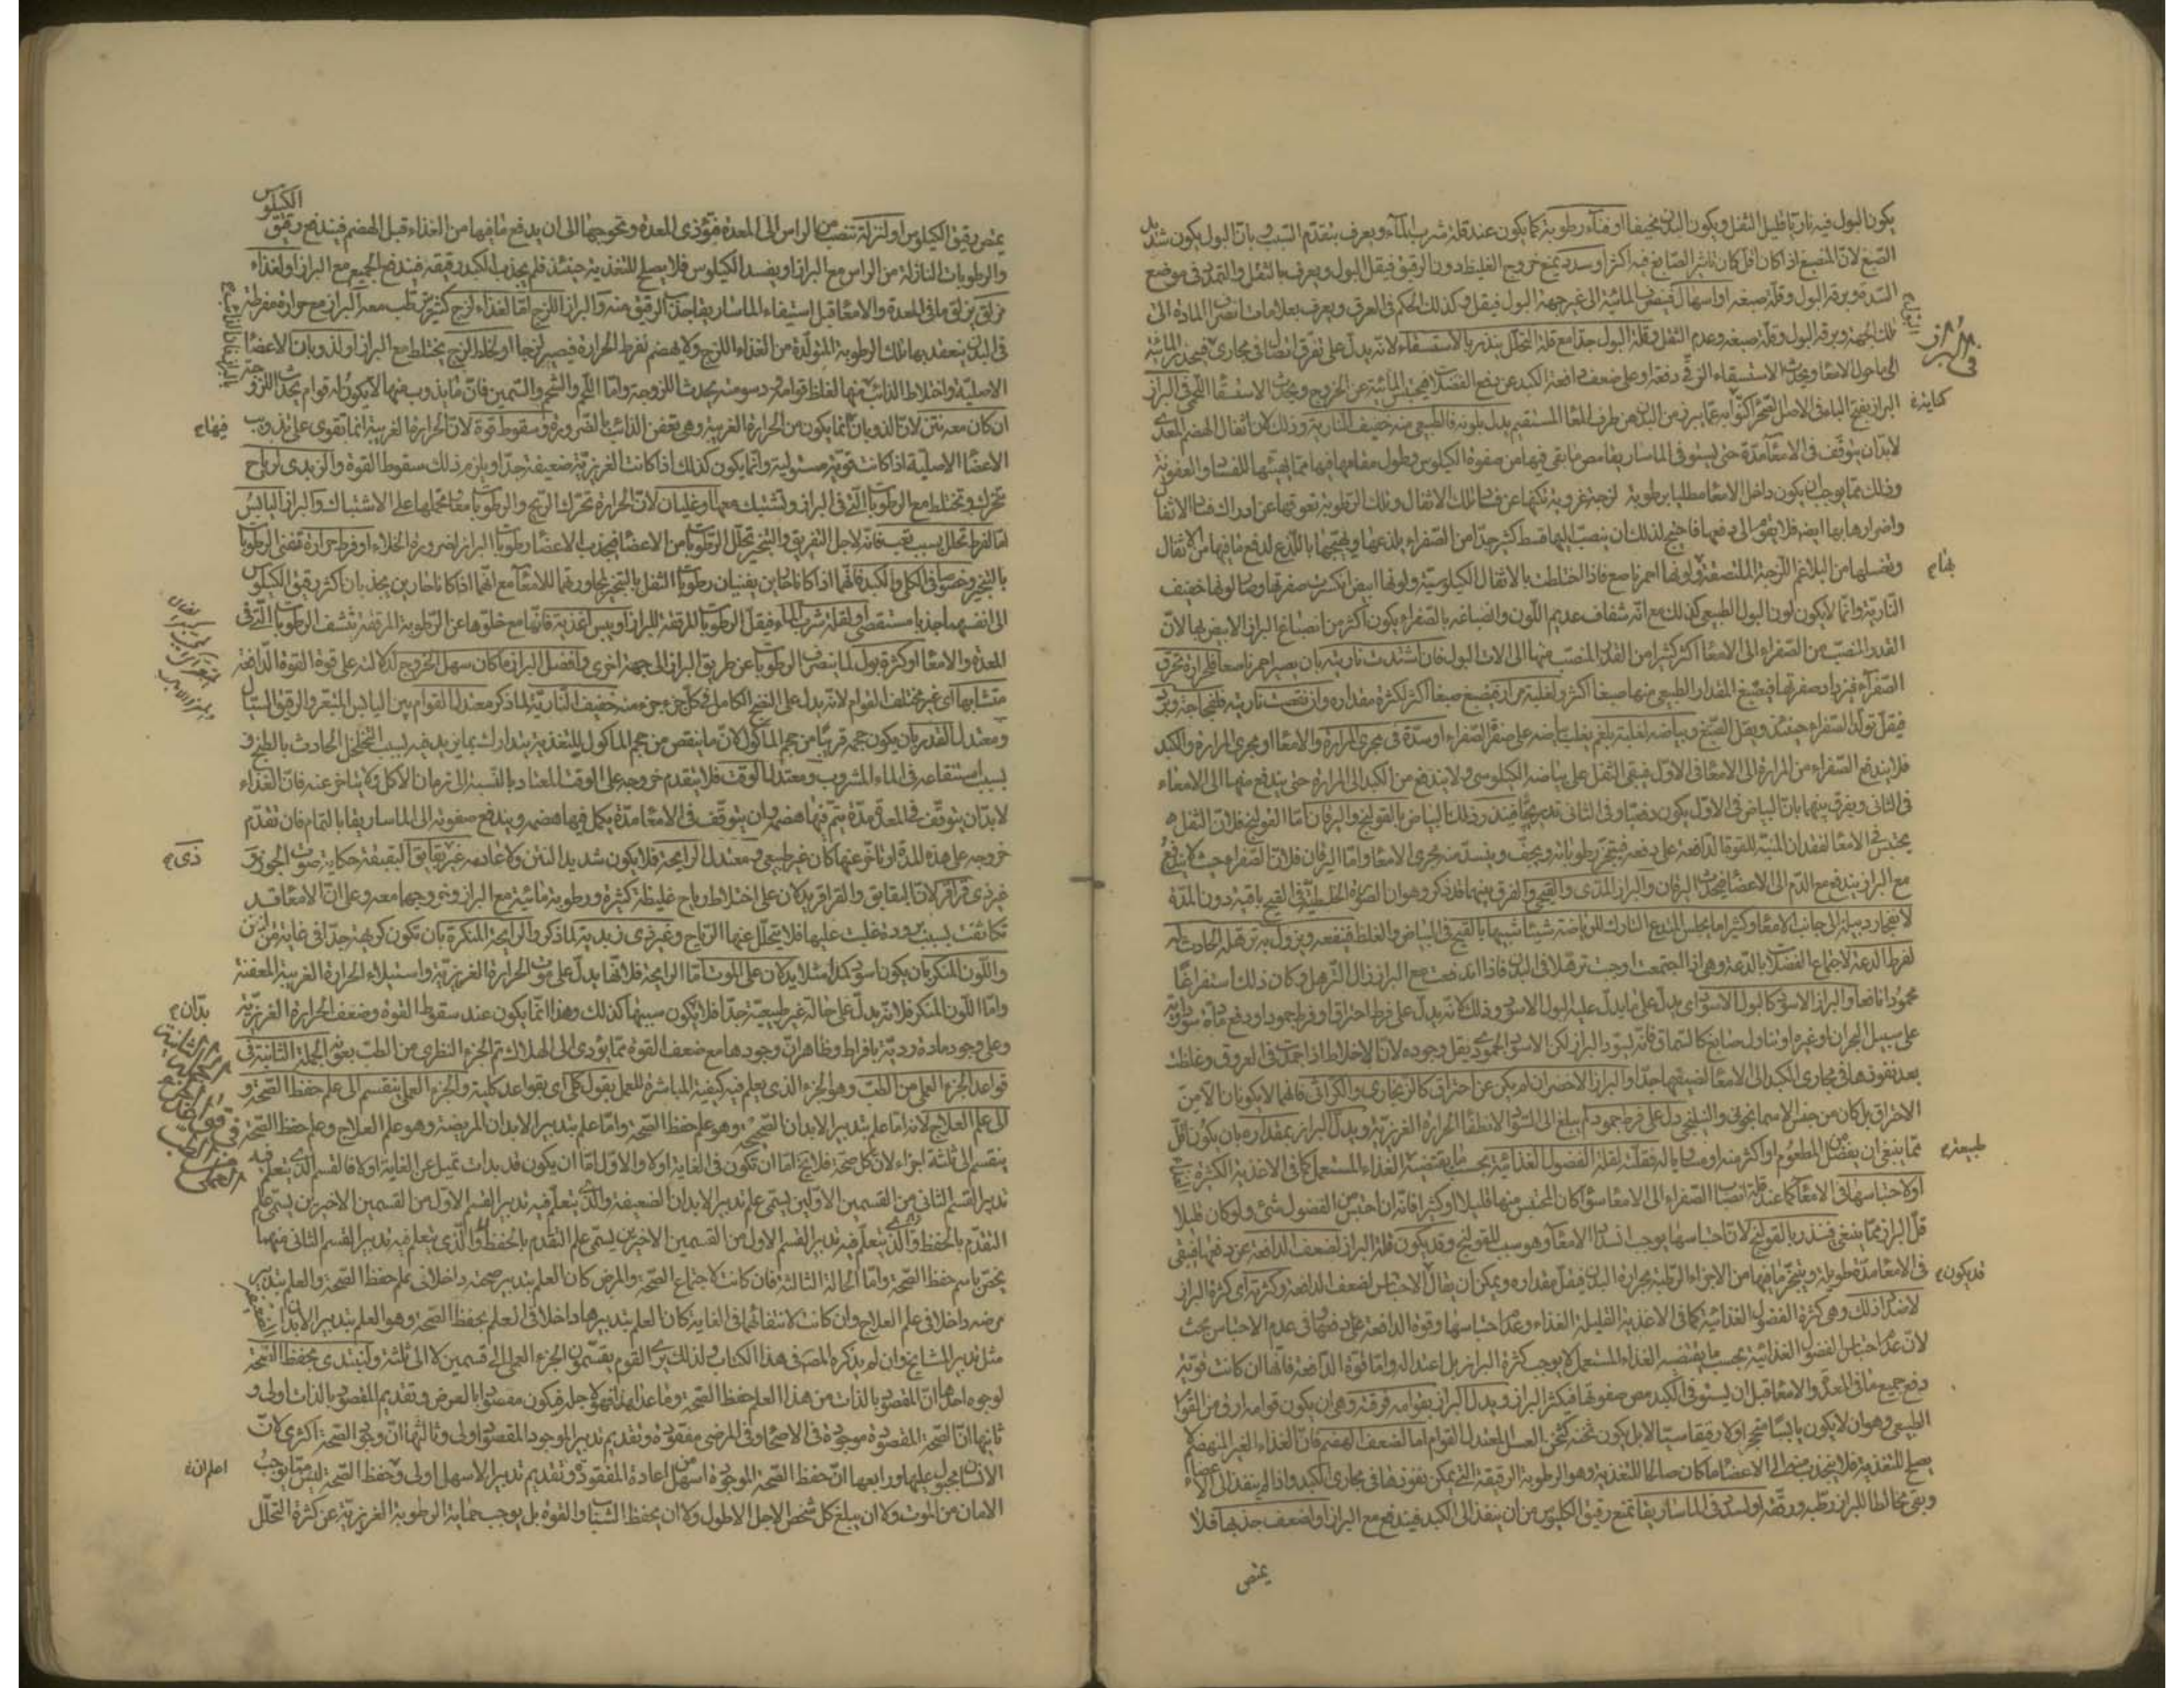 يكون البول فيه ناريا قليل الثفل ويكون البدن نحيفا او فناء رطوبة كما يكون عند قلة شرب الماء ويعرف بتقدم السبب وبان البول يكون شديد
الصبغ لان المنصبغ اذا كان اقل كان تاثير الصابغ فيه اكثر او سدد يمنع خروج الغليظ دون الرقيق فيقل البول ويعرف بالثقل والتمدد في موضع
السدة وبرقة البول وقلة صبغه او اسهال فيتصرف المائية الى غير جهة البول فيقل وكذلك الحكم في العرق ويعرف بعلامات تصرف المادة الى
تلك الجهة وبرقة البول وقلة صبغه وعدم الثفل وقلة البول جدا مع قلة التحلل ينذر بالاستسقاء لانه يدل على تفرق اتصال في مجاري فينحدر المائية
الى ماحول الامعا ويحدث الاستسقاء الزقي دفعة او على ضعف دافعة الكبد عن دفع الفضلات فيحتبس المائية عن الخروج ويحدث الاستسقا اللحمي في البراز
البراز بفتح الباء في الاصل الصحراء كنوا به عما يبرز من البدن من طرف المعا المستقيم يدل بلونه فالطبيعي منه خفيف النارية وذلك لان اثفال الهضم المعدي
لابد ان يتوقف في الامعاء مدة حتى يستوفي الماساريقا مص ما بقي فيها من صفوة الكيلوس وطول مقامها فيها مما يهيئها للفساد والعفونة
وذلك مما يوجب ان يكون داخل الامعا مطليا برطوبة لزجة غروية تكنها عن فساد تلك الاثفال وتلك الرطوبة تعوقها عن ادراك فساد الاثفال
واضرارها بها ايضا فلا يقوى الى دفعها فاحتيج لذلك ان ينصب اليها قسط كثير جدا من الصفراء يلذعها ويهيجها باللذع لدفع ما فيها من الاثفال
ويغسلها من البلاغم اللزجة الملتصقة ولونها احمر ناصع فاذا اختلطت بالاثفال الكيلوسية ولونها ابيض انكسرت صفرتها وصار لونها خفيف
النارية وانما لا يكون لون البول الطبيعي كذلك مع انه شفاف عديم اللون وانصباغه بالصفراء يكون اكثر من انصباغ البراز الابيض بها لان
القدر المنصب من الصفراء الى الامعا اكثر كثيرا من القدر المنصب منها الى الات البول فان اشتدت ناريته بان يصير احمر ناصعا فلحرارة تحرق
الصفراء فيزداد صفرتها فيصبغ المقدار الطبيعي منها صبغا اكثر ولغلبة مرار فيصبغ صبغا اكثر لكثرة مقداره وان نقصت ناريته فلفجاجة وبرد
فيقل تولد الصفراء حينئذ ويقل الصبغ وبياضه لغلبة بلغم يغلب بياضه على صفرة الصفراء او سدة في مجرى المرارة والامعا او مجرى المرارة والكبد
فلا يندفع الصفراء من المرارة الى الامعا في الاول فيبقى الثفل على بياضه الكيلوسي ولا يندفع من الكبد الى المرارة حتى يندفع منها الى الامعاء
في الثاني ويفرق بينهما بان البياض في الاول يكون دفعة وفي الثاني تدريجيا فينذر ذلك البياض بالقولنج واليرقان اما القولنج فلان الثفل
يحتبس في الامعا لفقدان المنبه للقوة الدافعة على دفعه فيتبخر رطوباته ويجف وينسد منه مجرى الامعا واما اليرقان فلان الصفراء حيث لا يندفع
مع البراز يندفع مع الدم الى الاعضا فيحدث اليرقان والبراز المدي والقيحي والفرق بينهما قد ذكر وهو ان الصورة الخلطية في القيح باقية دون المدة
لانفجار دبيلة الى جانب الامعا وكثيرا ما يجلس المتدع التارك للرياضة شيئا شبيها بالقيح في البياض والغلظ فينفعه ويزول به ترهله الحادث له
لفرط الدعة لاجتماع الفضلات بالدعة وهي اذا اجتمعت اوجبت ترهلا في البدن فاذا اندفعت مع البراز زال الترهل وكان ذلك استفراغا
محمودا نافعا والبراز الاسود كالبول الاسود اي يدل على ما يدل عليه البول الاسود وذلك لانه يدل على فرط احتراق او فرط جمود او دفع مادة سوداوية
على سبيل البحران او غيره او تناول صابغ كالسماق فانه يسود البراز لكن الاسود الجمودي يقل وجوده لان الاخلاط اذا جمدت في العروق وغلظت
بعد نفوذها في مجاري الكبد الى الامعا لضيقها جدا والبراز الاخضر ان لم يكن عن احتراق كالزنجاري والكراثي فانهما لا يكونان الا من
الاحتراق بل كان من جنس الاسمانجوني والنيلنجي دل على فرط جمود لم يبلغ الى السواد لانطفا الحرارة الغريزية ويدل البراز بمقداره بان يكون اقل
مما ينبغي ان يفضل من المطعوم او اكثر منه او مساويا له فقلته لقلة الفضول الغذائية بحسب ما يقتضيه الغذاء المستعمل كما في الاغذية الكثيرة
او لاحتباسها في الامعا كما عند قلة انصباب الصفراء الى الامعا سواء كان المحتبس منها قليلا او كثيرا فانه ان احتبس من الفضول شئ ولو كان قليلا
قل البراز عما ينبغي فينذر بالقولنج لان احتباسها يوجب انسداد الامعا وهو سبب للقولنج وقد يكون قلة البراز لضعف الدافعة عن دفعها فيبقى
في الامعا مدة طويلة ويتبخر ما فيها من الاجزاء الرطبة بحرارة البدن فيقل مقداره ويمكن ان يقال الاحتباس لضعف الدافعة وكثرته اي كثرة البراز
لاضداد ذلك وهي كثرة الفضول الغذائية كما في الاغذية القليلة الغذاء وعدم احتباسها وقوة الدافعة على دفعها وفي عدم الاحتباس بحث
لان عدم احتباس الفضول الغذائية بحسب ما يقتضيه الغذاء المستعمل لا يوجب كثرة البراز بل اعتداله واما قوة الدافعة فانها ان كانت قوية
دفع جميع ما في المعدة والامعا قبل ان يستوفي الكبد مص صفوتها فيكثر البراز ويدل البراز بقوامه فرقته وهي ان يكون قوامه ارق من القوام
الطبيعي وهو ان لا يكون يابسا متحجرا ولا رقيقا سيالا بل يكون ثخنه كثخن العسل المعتدل القوام اما لضعف الهضم فان الغذاء الغير المنهضم لا
يصلح للتغذية فلا ينجذب منه الى الاعضا ما كان صالحا للتغذية وهو الرطوبة الرقيقة التي يمكن نفوذها في مجاري الكبد واذا لم ينفذ الى الاعضاء
وبقي مخالطا للبراز رطبه ورققه او لسدد في الماساريقا تمنع رقيق الكيلوس من ان ينفذ الى الكبد فيندفع مع البراز او لضعف جذبها فلا
يمتص
في البراز
كناية
بها
طبيعة
قد يكون
الكيلوس
يمتص رقيق الكيلوس او لنزلة تنصب من الراس الى المعدة فتؤذي المعدة وتحوجها الى ان يدفع ما فيها من الغذاء قبل الهضم فيندفع رقيق
والرطوبات النازلة من الراس مع البراز او يفسد الكيلوس فلا يصلح للتغذية حينئذ فلم يجذب الكبد رقيقه فيندفع الجميع مع البراز او لغذاء
مزلق يزلق ما في المعدة والامعا قبل استيفاء الماساريقا جذب الرقيق منه والبراز اللزج اما لغذاء لزج كثير يترطب معه البراز مع حرارة مفرطة
في البدن ينعقد بها تلك الرطوبة المتولدة من الغذاء اللزج ولا يهضم لفرط الحرارة فيصير لزجا او لخلط لزج يختلط مع البراز او لذوبان الاعضا
الاصلية واختلاط الذائب منها لغلظ قوامه ودسومته يحدث اللزوجة واما اللحم والشحم والسمين فان ما يذوب منها لا يكون له قوام يحدث اللزوجة
ان كان معه نتن لان الذوبان انما يكون من الحرارة الغريبة وهي تعفن الذائب بالضرورة وسقوط قوة لان الحرارة الغريبة انما تقوى على تذويب
الاعضا الاصلية اذا كانت قوية مستولية وانما يكون كذلك اذا كانت الغريزية ضعيفة جدا ويلزم ذلك سقوط القوة والزبدي لرياح
تتحرك وتختلط مع الرطوبات التي في البراز وتشتبك معها او غليان لان الحرارة تحرك الريح والرطوبات معا فتحملها على الاشتباك والبراز اليابس
اما لفرط تحلل بسبب تعب فانه لاجل التعريق والتبخير تحلل الرطوبات من الاعضا فيجذب الاعضا رطوبات البراز لضرورة الخلاء او فرط حرارة تفني الرطوبات
بالتبخير وخصوصا في الكلى والكبد فانهما اذا كانا حارين يفنيان رطوبات الثفل بالتبخير لمجاورتهما للامعا مع انهما اذا كانا حارين يجذبان اكثر رقيق الكيلوس
الى انفسهما جذبا مستقصى او لقلة شرب الماء فيقل الرطوبات المرققة للبراز او يبس اغذية فانها مع خلوها عن الرطوبة المرققة تنشف الرطوبات التي في
المعدة والامعا او كثرة بول لما ينصرف الرطوبات عن طريق البراز الى جهة اخرى وافضل البراز ما كان سهل الخروج لدلالته على قوة القوة الدافعة
متشابها اي غير مختلف القوام لانه يدل على النضج الكامل في كل جزء جزء منه خفيف النارية لما ذكر معتدل القوام بين اليابس المتعقر والرقيق السيال
ومعتدل القدر بان يكون حجمه قريبا من حجم الماكول لان ما ينقص من حجم الماكول للتغذية يتدارك بما يزيد فيه لسبب التخلخل الحادث بالطبخ و
بسبب استنقاعه في الماء المشروب ومعتدل الوقت فلا يتقدم خروجه على الوقت المعتاد بالنسبة الى زمان الاكل ولا يتاخر عنه فان الغذاء
لابد ان يتوقف في المعدة مدة يتم فيها هضمه وان يتوقف في الامعا مدة يكمل فيها هضمه ويندفع صفوته الى الماساريقا بالتمام فان تقدم
خروجه على هذه المدة او تاخر عنها كان غير طبيعي ومعتدل الرايحة فلا يكون شديد النتن ولا عادمه غير بقابق البقبقة حكاية صوت الجوز و
غير ذي قراقر لان البقابق والقراقر يدلان على اختلاط رياح غليظة كثيرة ورطوبة مائية مع البراز وخروجها معه وعلى ان الامعا قد
تكاثفت بسبب برودة غلبت عليها فلا يتحلل عنها الرياح وغير ذي زبدية لما ذكر والرايحة المنكرة بان تكون كريهة جدا في غاية من النتن
واللون المنكر بان يكون اسود كمدا مثلا يدلان على الموت اما الرايحة فلانها يدل على موت الحرارة الغريزية واستيلاء الحرارة الغريبة المعفنة
واما اللون المنكر فلانه يدل على حالة غير طبيعية جدا فلا يكون سببها كذلك وهذا انما يكون عند سقوط القوة وضعف الحرارة الغريزية
وعلى وجود مادة ردية بافراط وظاهر ان وجودها مع ضعف القوة مما يؤدي الى الهلاك تم الجزء النظري من الطب بعون الجملة الثانية في
قواعد الجزء العملي من الطب وهو الجزء الذي يعلم فيه كيفية المباشرة للعمل بقول كلي اي بقواعد كلية والجزء العملي ينقسم الى علم حفظ الصحة و
الى علم العلاج لانه اما علم بتدبير الابدان الصحيحة وهو علم حفظ الصحة واما علم بتدبير الابدان المريضة وهو علم العلاج وعلم حفظ الصحة
ينقسم الى ثلثة اجزاء لان كل صحة فلا يخ اما ان تكون في الغاية اولا والاول اما ان يكون قد بدات تميل عن الغاية اولا فالقسم الذي يتعلم فيه
تدبير القسم الثاني من القسمين الاولين يسمى علم تدبير الابدان الضعيفة والذي يتعلم فيه تدبير القسم الاول من القسمين الاخيرين يسمى علم
التقدم بالحفظ والذي يتعلم فيه تدبير القسم الاول من القسمين الاخيرين يسمى علم التقدم بالحفظ والذي يتعلم فيه تدبير القسم الثاني منهما
يختص باسم حفظ الصحة واما الحالة الثالثة فان كانت لاجتماع الصحة والمرض كان العلم بتدبير صحته داخلا في علم حفظ الصحة والعلم بتدبير
مرضه داخلا في علم العلاج وان كانت لانتفائهما في الغاية كان العلم بتدبيرها داخلا في العلم بحفظ الصحة وهو العلم بتدبير الابدان
مثل تدبير المشايخ وان لم يذكره المص في هذا الكتاب ولذلك ترى القوم يقسمون الجزء العملي الى قسمين لا الى ثلثة ولنبتدي بحفظ الصحة
لوجوه احدها ان المقصود بالذات من هذا العلم حفظ الصحة وما عداه انما هو لاجله فيكون مقصودا بالعرض وتقديم المقصود بالذات اولى و
ثانيها ان الصحة المقصودة موجودة في الاصحا وفي المرضى مفقودة وتقديم تدبير الموجود المقصود اولى وثالثها ان وجود الصحة اكثري لان
الانسان مجبول عليها ورابعها ان حفظ الصحة الموجودة اسهل من اعادة المفقودة وتقديم تدبير الاسهل اولى وحفظ الصحة ليس مما يوجب
الامان من الموت ولا ان يبلغ كل شخص الاجل الاطول ولا ان يحفظ الشباب والقوة بل يوجب حماية الرطوبة الغريزية عن كثرة التحلل
فيها
ذي
بدان
الجملة الثانية
في قواعد الجزء
العملي
اعلم ان